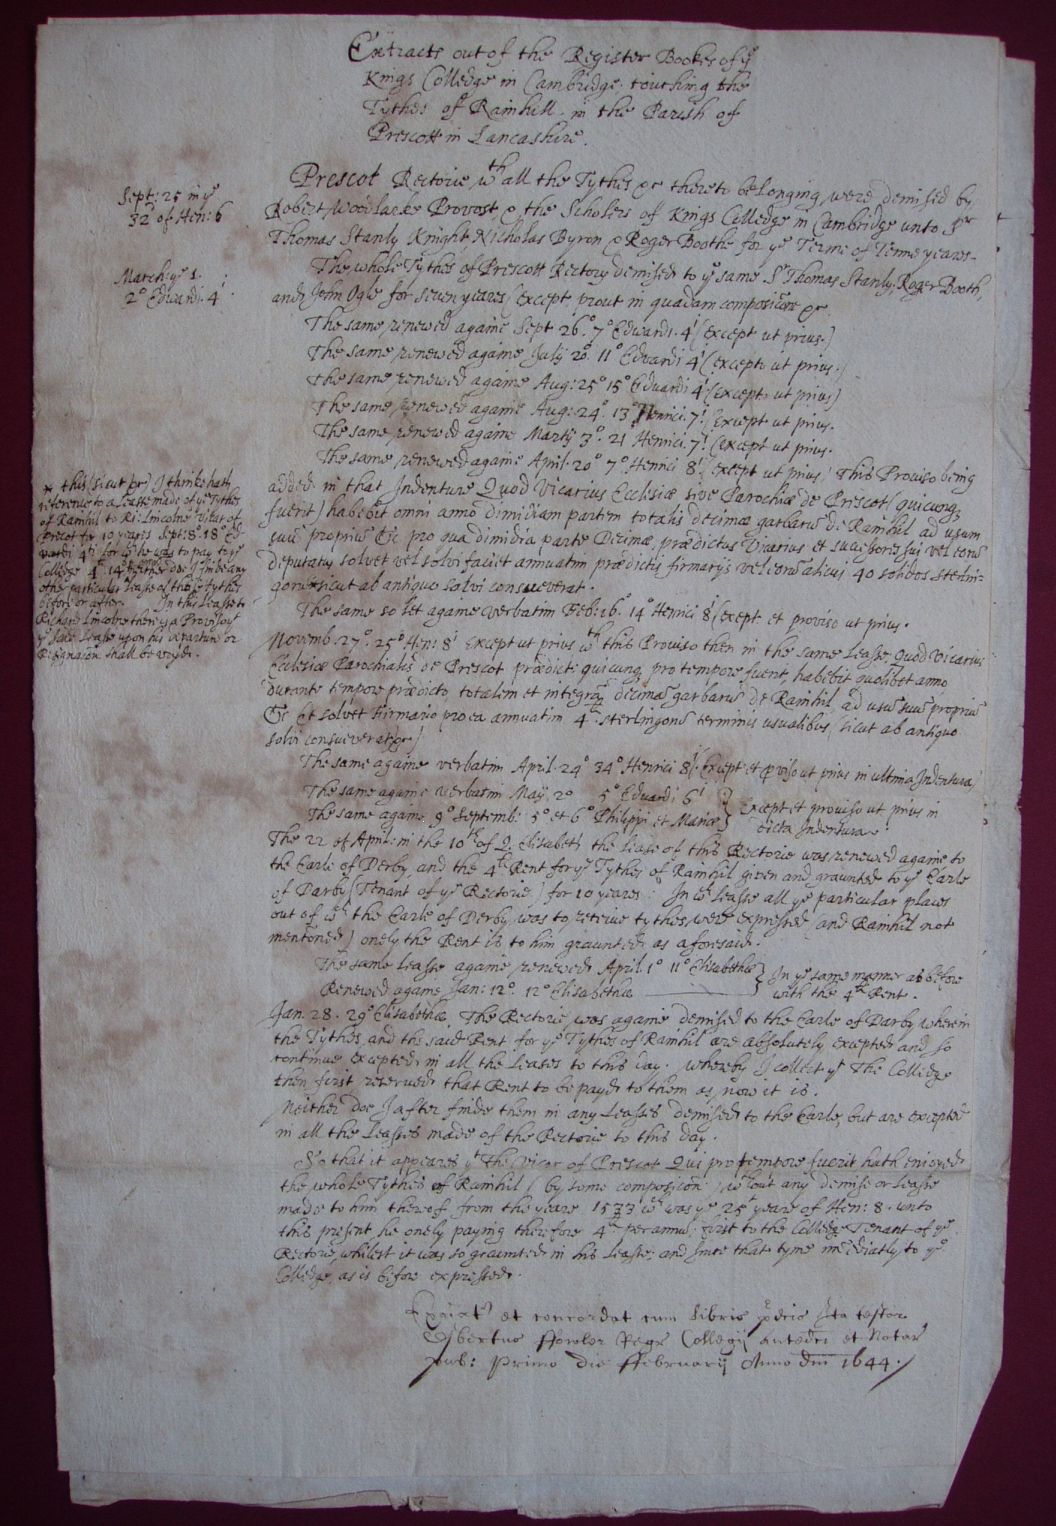 Extracts out of the Register Bookes of ye
Kings Colledge in Cambridge touching the
Tythes of Rainhill in the Parish of
Prescott in Lancashire.
Sept: 25 in ye
32 of Hen: 6
Prescot Rectorie wth all the Tythes &c thereto belonging were demised by
Robert Woodlarke Provost & the Scholers of Kings Colledge in Cambridge unto Sr
Thomas Stanly Knight Nicholas Byron & Roger Boothe for ye Terme of Tenne yeares.
March ye 1.
2o Edwardi. 4i
The whole Tythes of Prescott Rectory demised to ye same Sr Thomas Stanly, Roger Booth,
and John Ogle for seven yeares (except, prout in quadam composicõne &c.
The same renewed againe Sept 26.o 7o Edwardi. 4i (except ut prius.)
The same renewed againe July 20. 11o Edvardi 4i (excepto ut prius.)
the same renewed againe Aug: 25o 15o Edvardi 4i (except ut prius)
The same renewed againe Aug: 24o. 13o Henrici. 7i. (except ut prius.
The same renewed againe Martij 3o. 21 Henrici. 7i. (except ut prius.
The same renewed againe April. 20o 7o Henrici 8i (except ut prius) This Proviso being
added in that Indenture Quod Vicarius Ecclesiæ sive Parochiæ de Prescot (quicunq;
fuerit) habebit omni anno dimidiam partem totalis decimæ garbarũ de Rainhil ad usum
suũ propriũ &c pro qua dimidia parte Decimæ, prædictus Vicarius et successores sui vel eorũ
deputatus solvet vel solvi faciet annuatim prædictis firmarijs vel eorũ alicui 40 solidos sterlin-
gorũ sicut ab antiquo solvi consueverat.
* this (sicut &c) I thinke hath
reference to a Lease made of ye Tythes
of Rainhil to Ri: Lincolne Vicar of
Prescot for 10 yeares Sept: 8. 18 Ed-
wardi 4ti for wch he was to pay to ye
Colledge 4li
other particular Lease of those Tythes
before or after. In this Lease to
Richard Lincolne there is a Proviso yt
ye said Lease upon his departure or
Resignacõn shall be voyde.
The same so let againe verbatim Feb: 16.o 14o Henrici 8i (except et proviso ut prius.
Novemb. 27o 25o Hen: 8i Except ut prius wth this Proviso then in the same Lease, Quod Vicarius
Ecclesiæ Parochialis de Prescot prædict: quicunq, pro tempore fuerit, habebit quolibet anno
durante tempore prædicto totalem et integrã decimã garbarũ de Rainhil ad usũ suũ propriũ
&c Et solvet Firmario pro ea annuatim 4li. sterlingorũ terminis usualibus, sicut ab antiquo
solvi consueverat &c)
The same againe verbatim April. 24o 34o Henrici 8i (Except et pviso ut prius in ultima Indentura)
The same againe verbatim Maij 2o 5o Edvardi 6i
The same againe 9o Septemb: 5o et 6o Philippi et Mariæ
except et proviso ut prius in
dicta Indentura.
The 22 of April in the 10th of Q. Elisabeth the lease of this Rectorie was renewed againe to
the Earle of Derby, and the 4li Rent for ye Tythes of Rainhil given and graunted to ye Earle
of Darby (Tenant of ye Rectorie) for 10 yeares: In wch Lease all ye particular places
out of wch the Earle of Derby was to receive tythes, were expressed (and Rainhil not
mentioned) onely the Rent is to him graunted as aforesaid.
The same Lease againe renewed April 1o 11o Elisabethæ
Renewed againe Jan: 12o. 12o Elisabethæ
In ye same manner as before
with the 4li Rent.
Jan. 28. 29o Elisabethæ The Rectorie was againe demised to the Earle of Darby wherein
the Tythes, and the said Rent for ye Tythes of Rainhil are absolutely excepted and so
continue excepted in all the Leases to this day. whereby I collect yt The Colledge
then first reserved that Rent to be payd to them as now it is.
Neither doe I after finde them in any Leases demised to the Earle, but are excepted
in all the Leases made of the Rectorie to this day.
So that it appeares yt the Vicar of Prescot Qui pro tempore fuerit hath enioyed
the whole Tythes of Rainhil (by some composicõn) wthout any demise or lease
made to him thereof from the yeare 1533 wch was ye 25t yeare of Hen: 8. unto
this present, he onely paying therefore 4li per annũ, first to the Colledge Tenant of ye
Rectorie, whilest it was so graunted in his Lease, and since that tyme imediatly to ye
Colledge, as is before expressed.
Exãiat' et concordat cum Libris pdcis Ita testor
ffowler Regs Collegij antedci et Notar'
pub: Primo die ffebruarij Anno dni 1644.